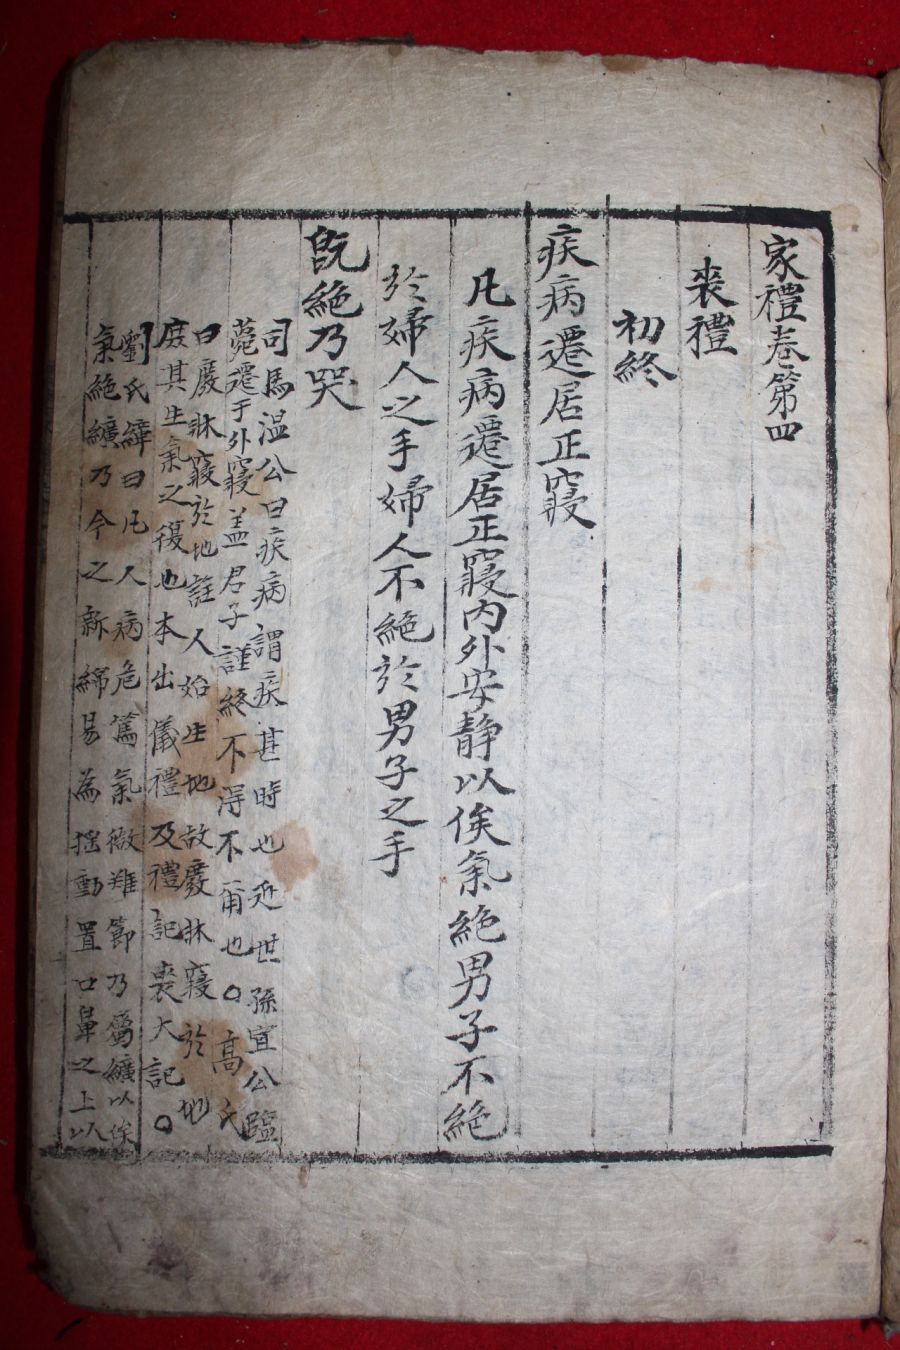 家禮卷第四
喪禮
初終
疾病遷居正寢
凡疾病遷居正寢內外安靜以俟氣絶男子不絶
於婦人之手婦人不絶於男子之手
旣絶乃哭
司馬温公曰疾病謂疾甚時也近世孫宣公臨
薨遷于外寢盖君子謹終不得不爾也○高氏
曰廢牀寢於地註人始生地故廢牀寢於地
庶其生氣之復也本出儀禮及禮記喪大記○
劉氏璋曰凡人病危篤氣微難節乃屬纊以俟
氣絶纊乃今之新綿易為揺動置口鼻之上以